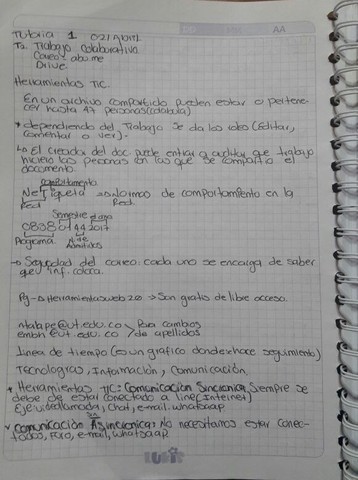 AA
Tutoria 1 02/Abril
T2. Trabajo Colaborativo
Correo - about me
Drive.
Herramientas TIC.
En un archivo compartido pueden estar o pertene-
cer hasta 44 personas
* dependiendo del Trabajo se da los roles (Editar,
comentar o ver).
El creador del doc puede entrar a auditar que trabajo
hicieron las personas con las que se compartio el
documento.
comportamento
NeTiqueta → Normas de comportamiento en la
Red Red.
Semestre
0838 2017
Programa. Admitidos
→ Seguridad del correo: cada uno se encarga de saber
que inf. coloca.
Pg → Herramientasweb 2.0 → Son gratis de libre acceso.
@ut.edu.co Para cambios
@ut.edu.co de apellidos
Linea de tiempo (es un grafico donde se hace seguimiento)
Tecnologias, Informacion, y Comunicacion.
* Herramientas TIC: Comunicacion Sincronica, Siempre se
debe de estar conectado a line (Internet)
Eje: videollamada, Chat, e-mail. whatsaap
Comunicación Asincronica: No necesitamos estar conec-
todos, Foro, e-mail, whatsaap